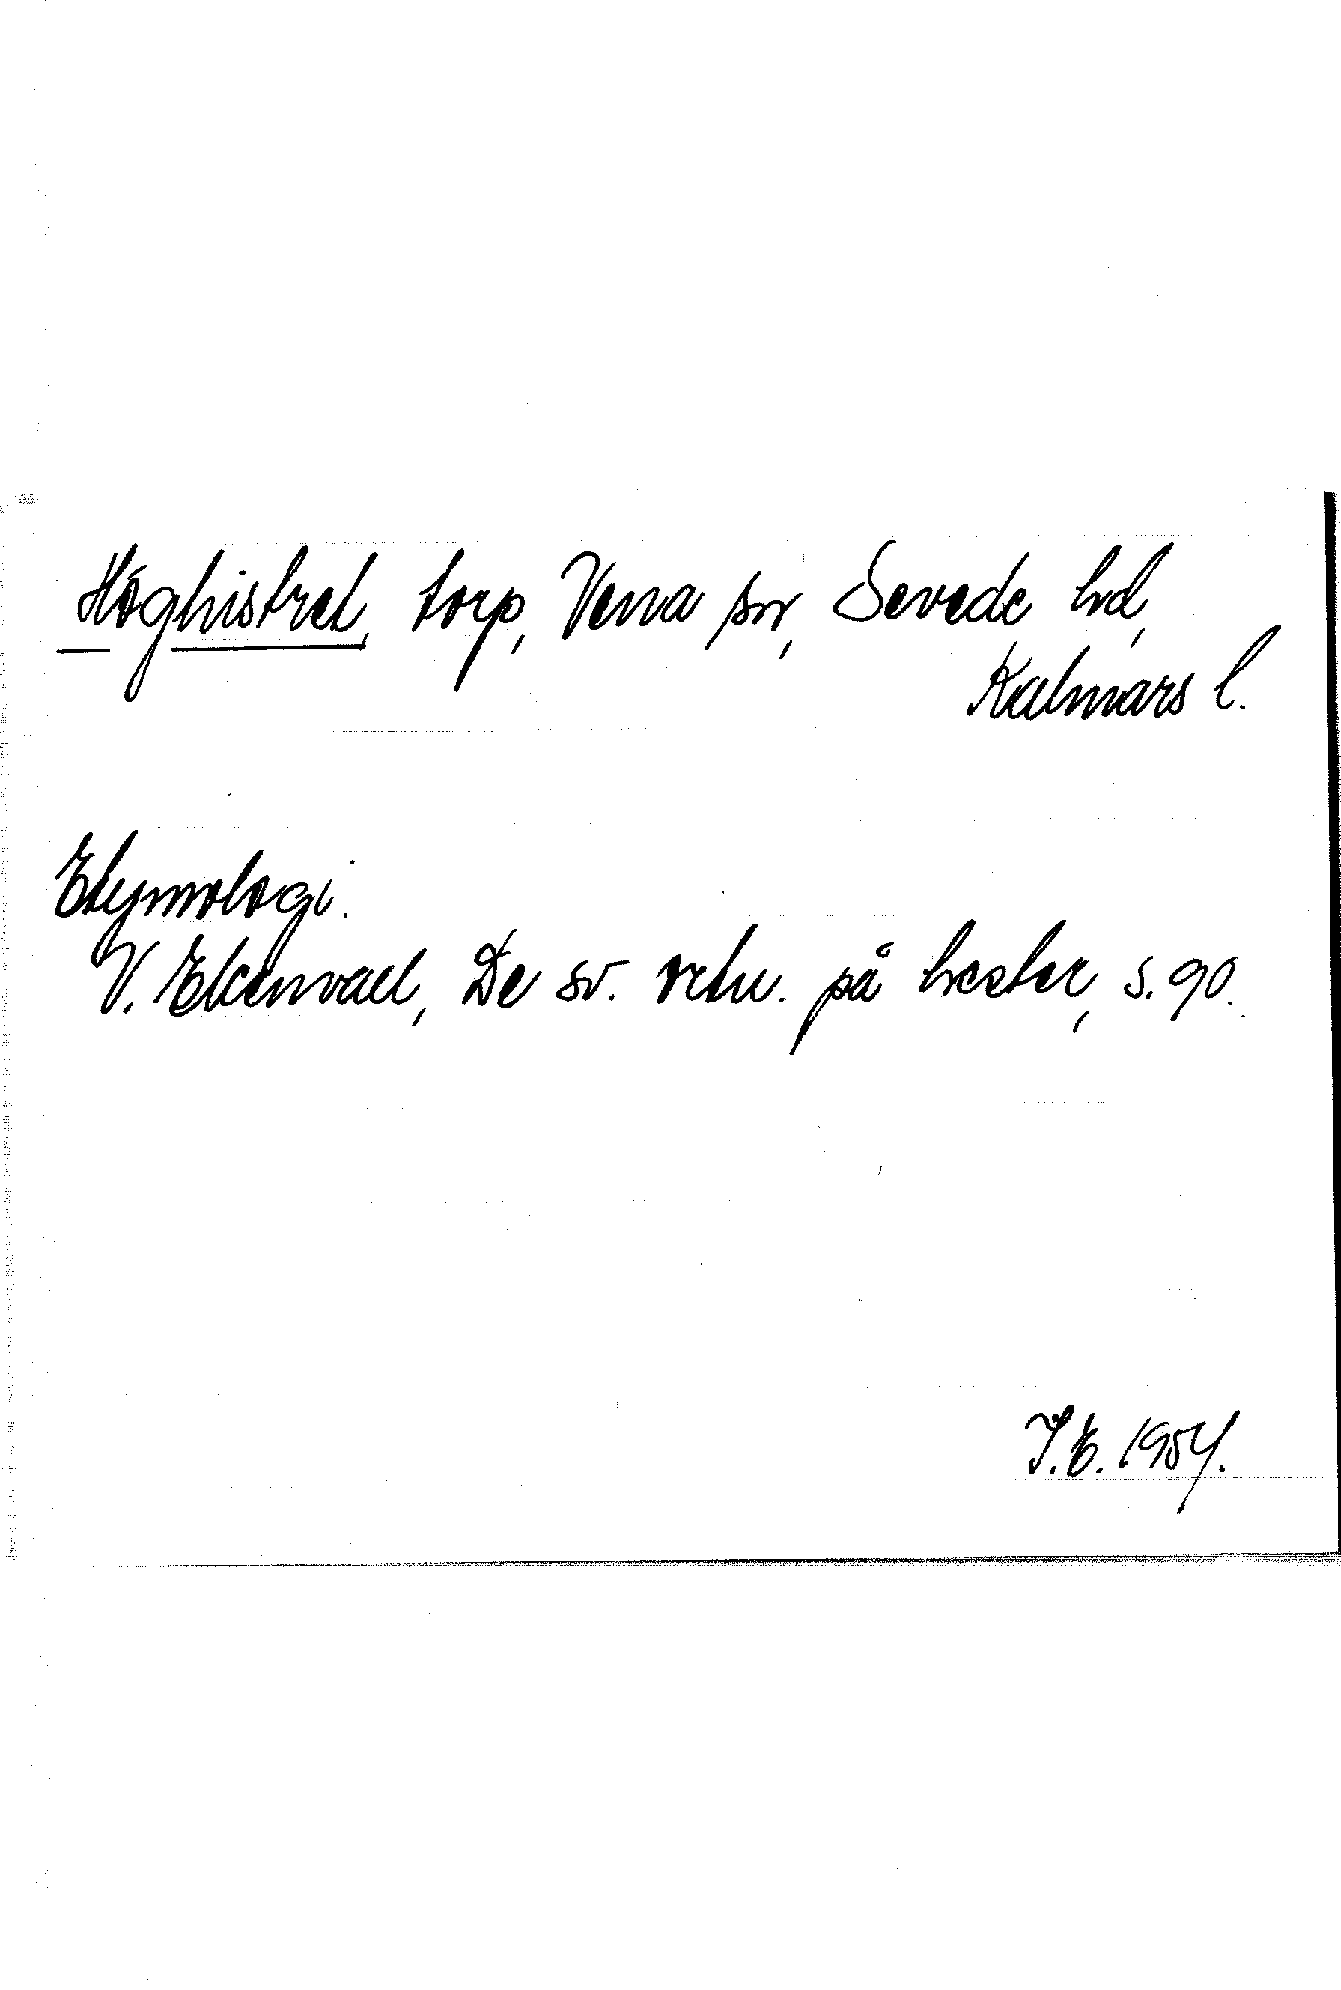 Höghistret, torp, Vena sn, Sevede hd,
Kalmars l.
Etymologi.
V. Ekenvall, De sv. ortn. på hester, s. 90.
I.E. 1954.